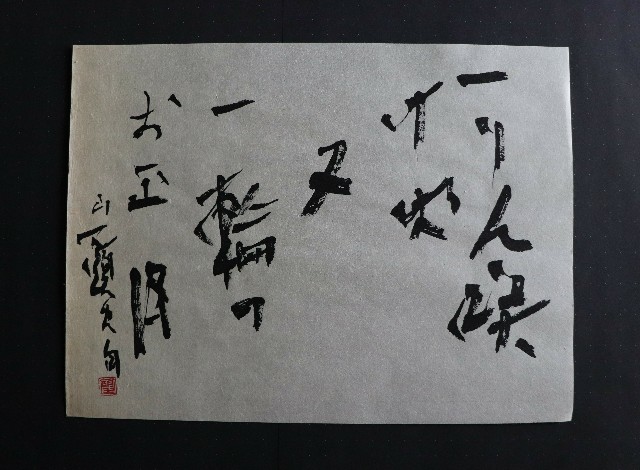 一りん咲
けば
又
一輪の
お正月
山頭火句